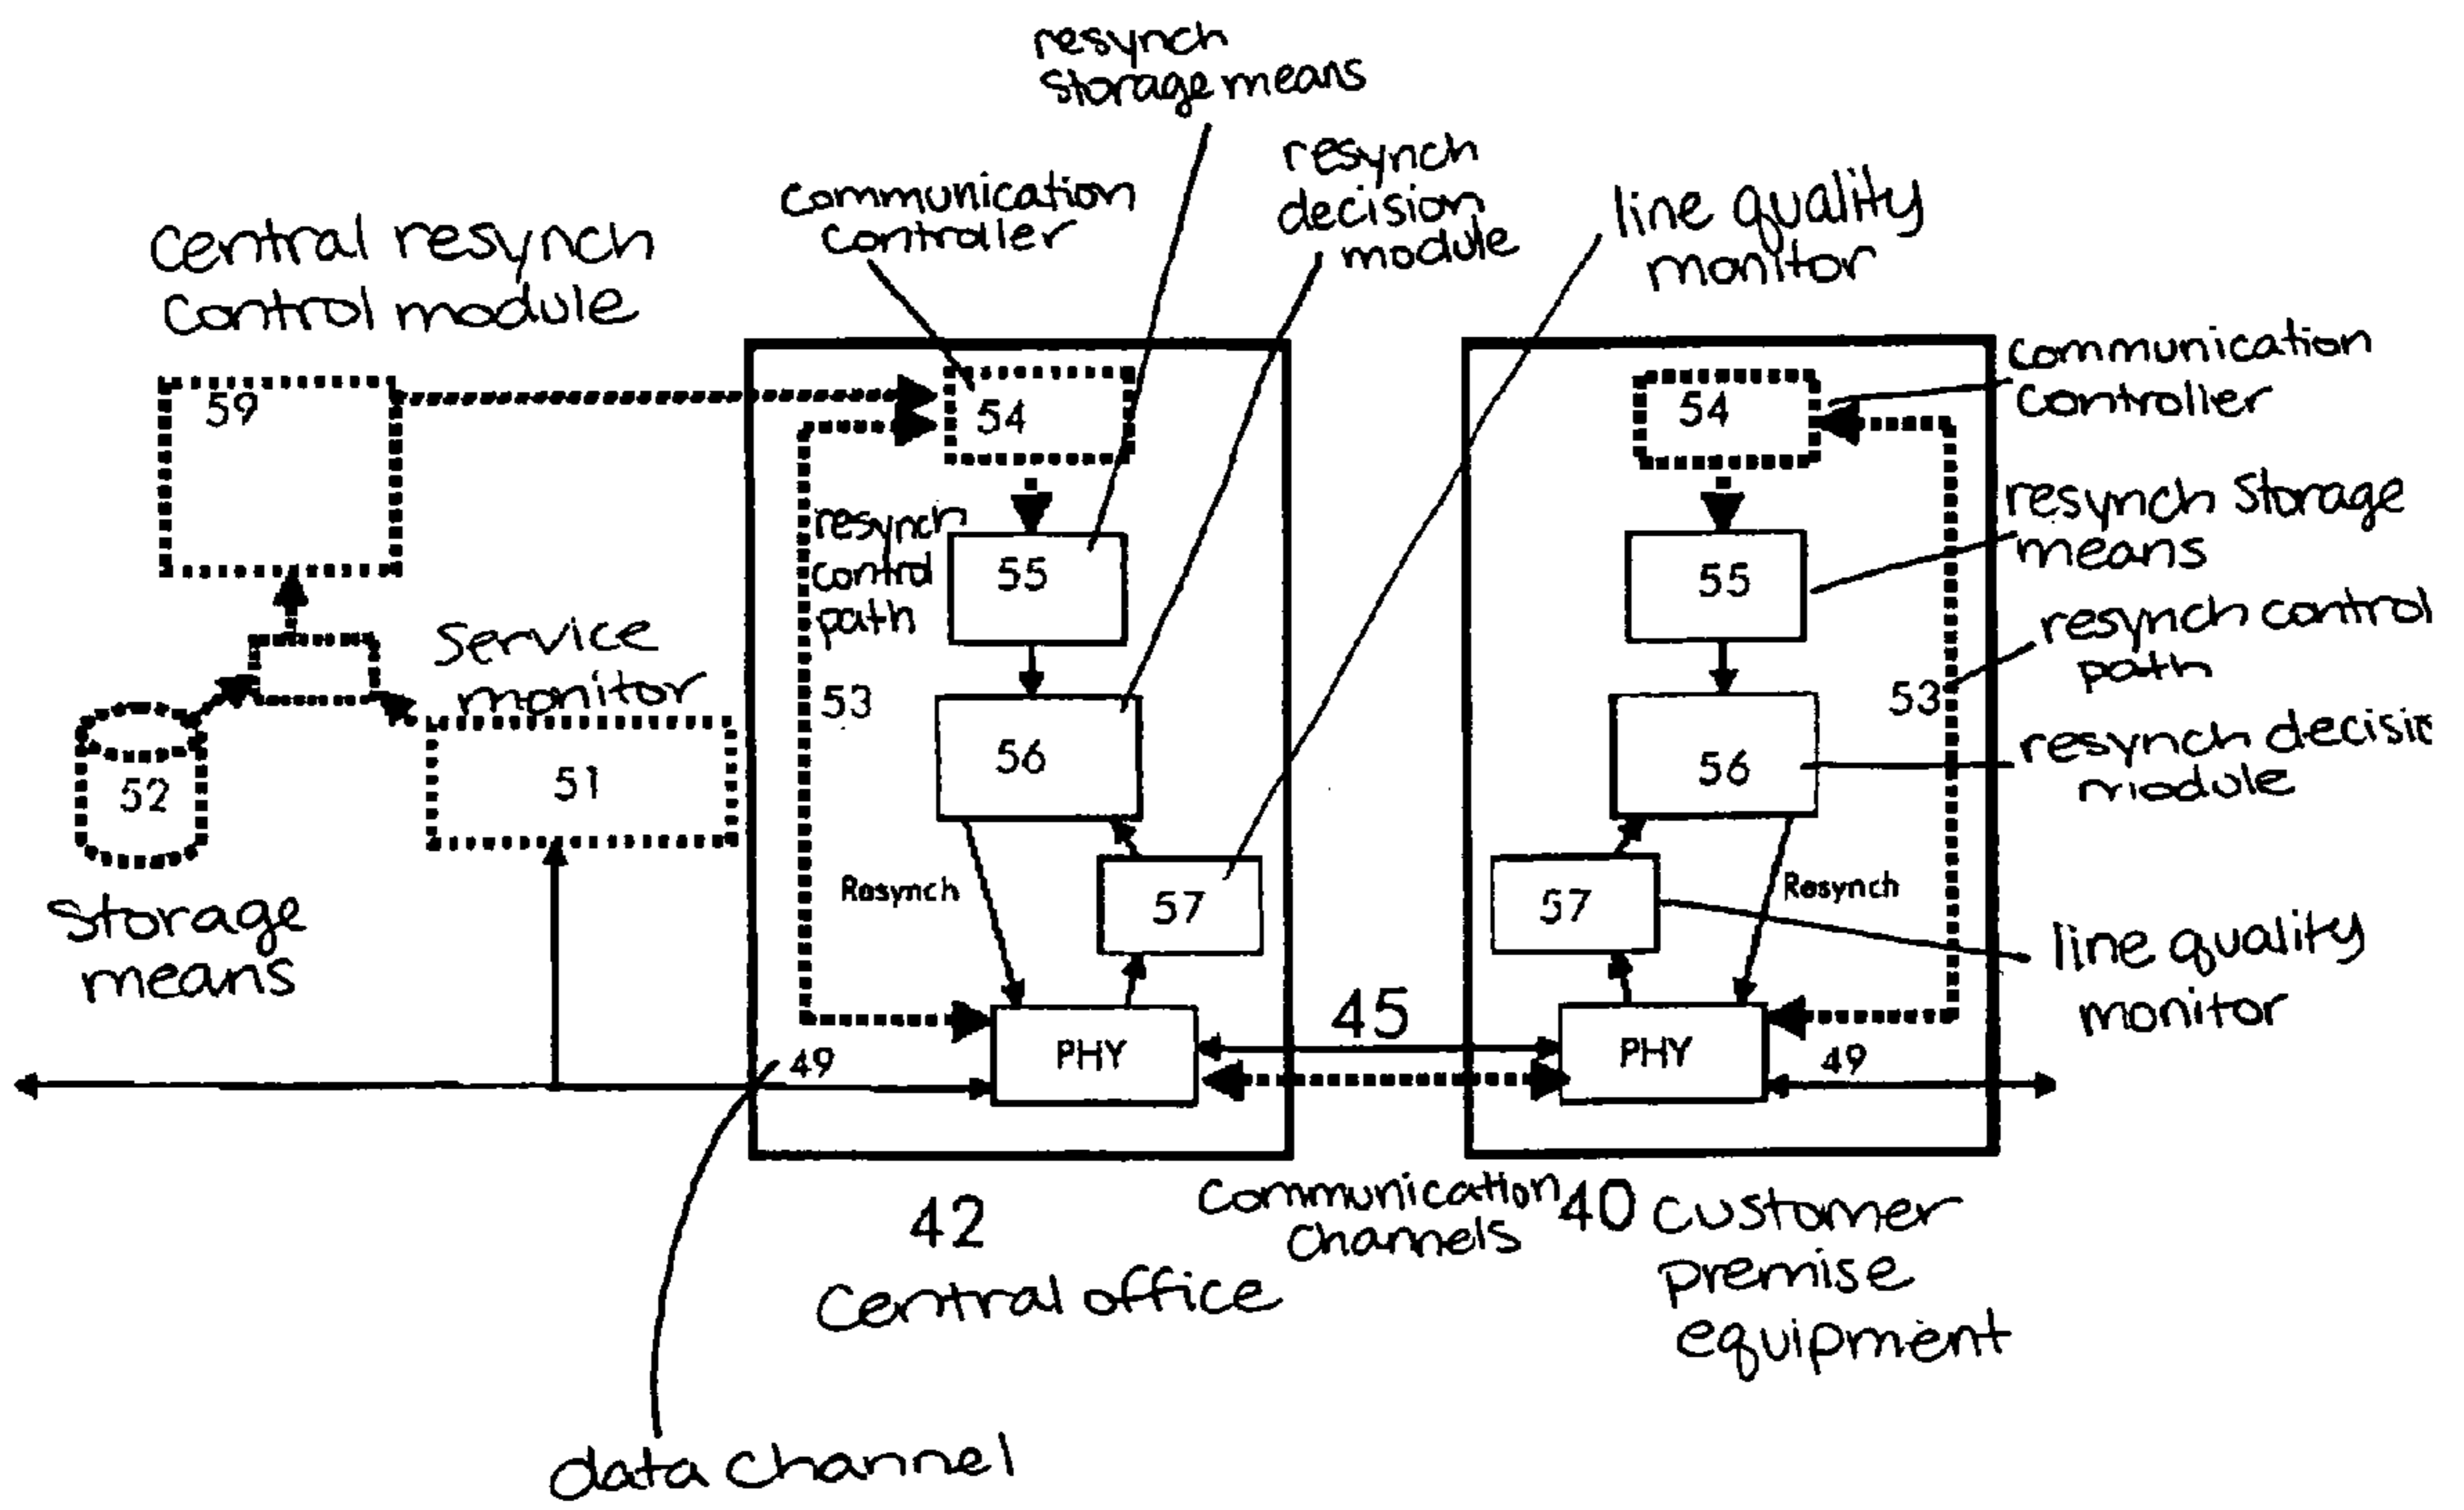 resynch
Storage means
resynch
decision
module
communication
controller
line quality
monitor
Central resynch
Control module
communication
Controller
59
54
54
resynch
control
path
55
55
resynch Storage
means
resynch control
path
Service
monitor
53
53
56
56
resynch decisi
module
52
51
Resynch
57
57
Resynch
Storage
means
line quality
monitor
45
49
PHY
PHY
49
42
Central office
Communication
Channels
40 Customer
premise
equipment
data channel